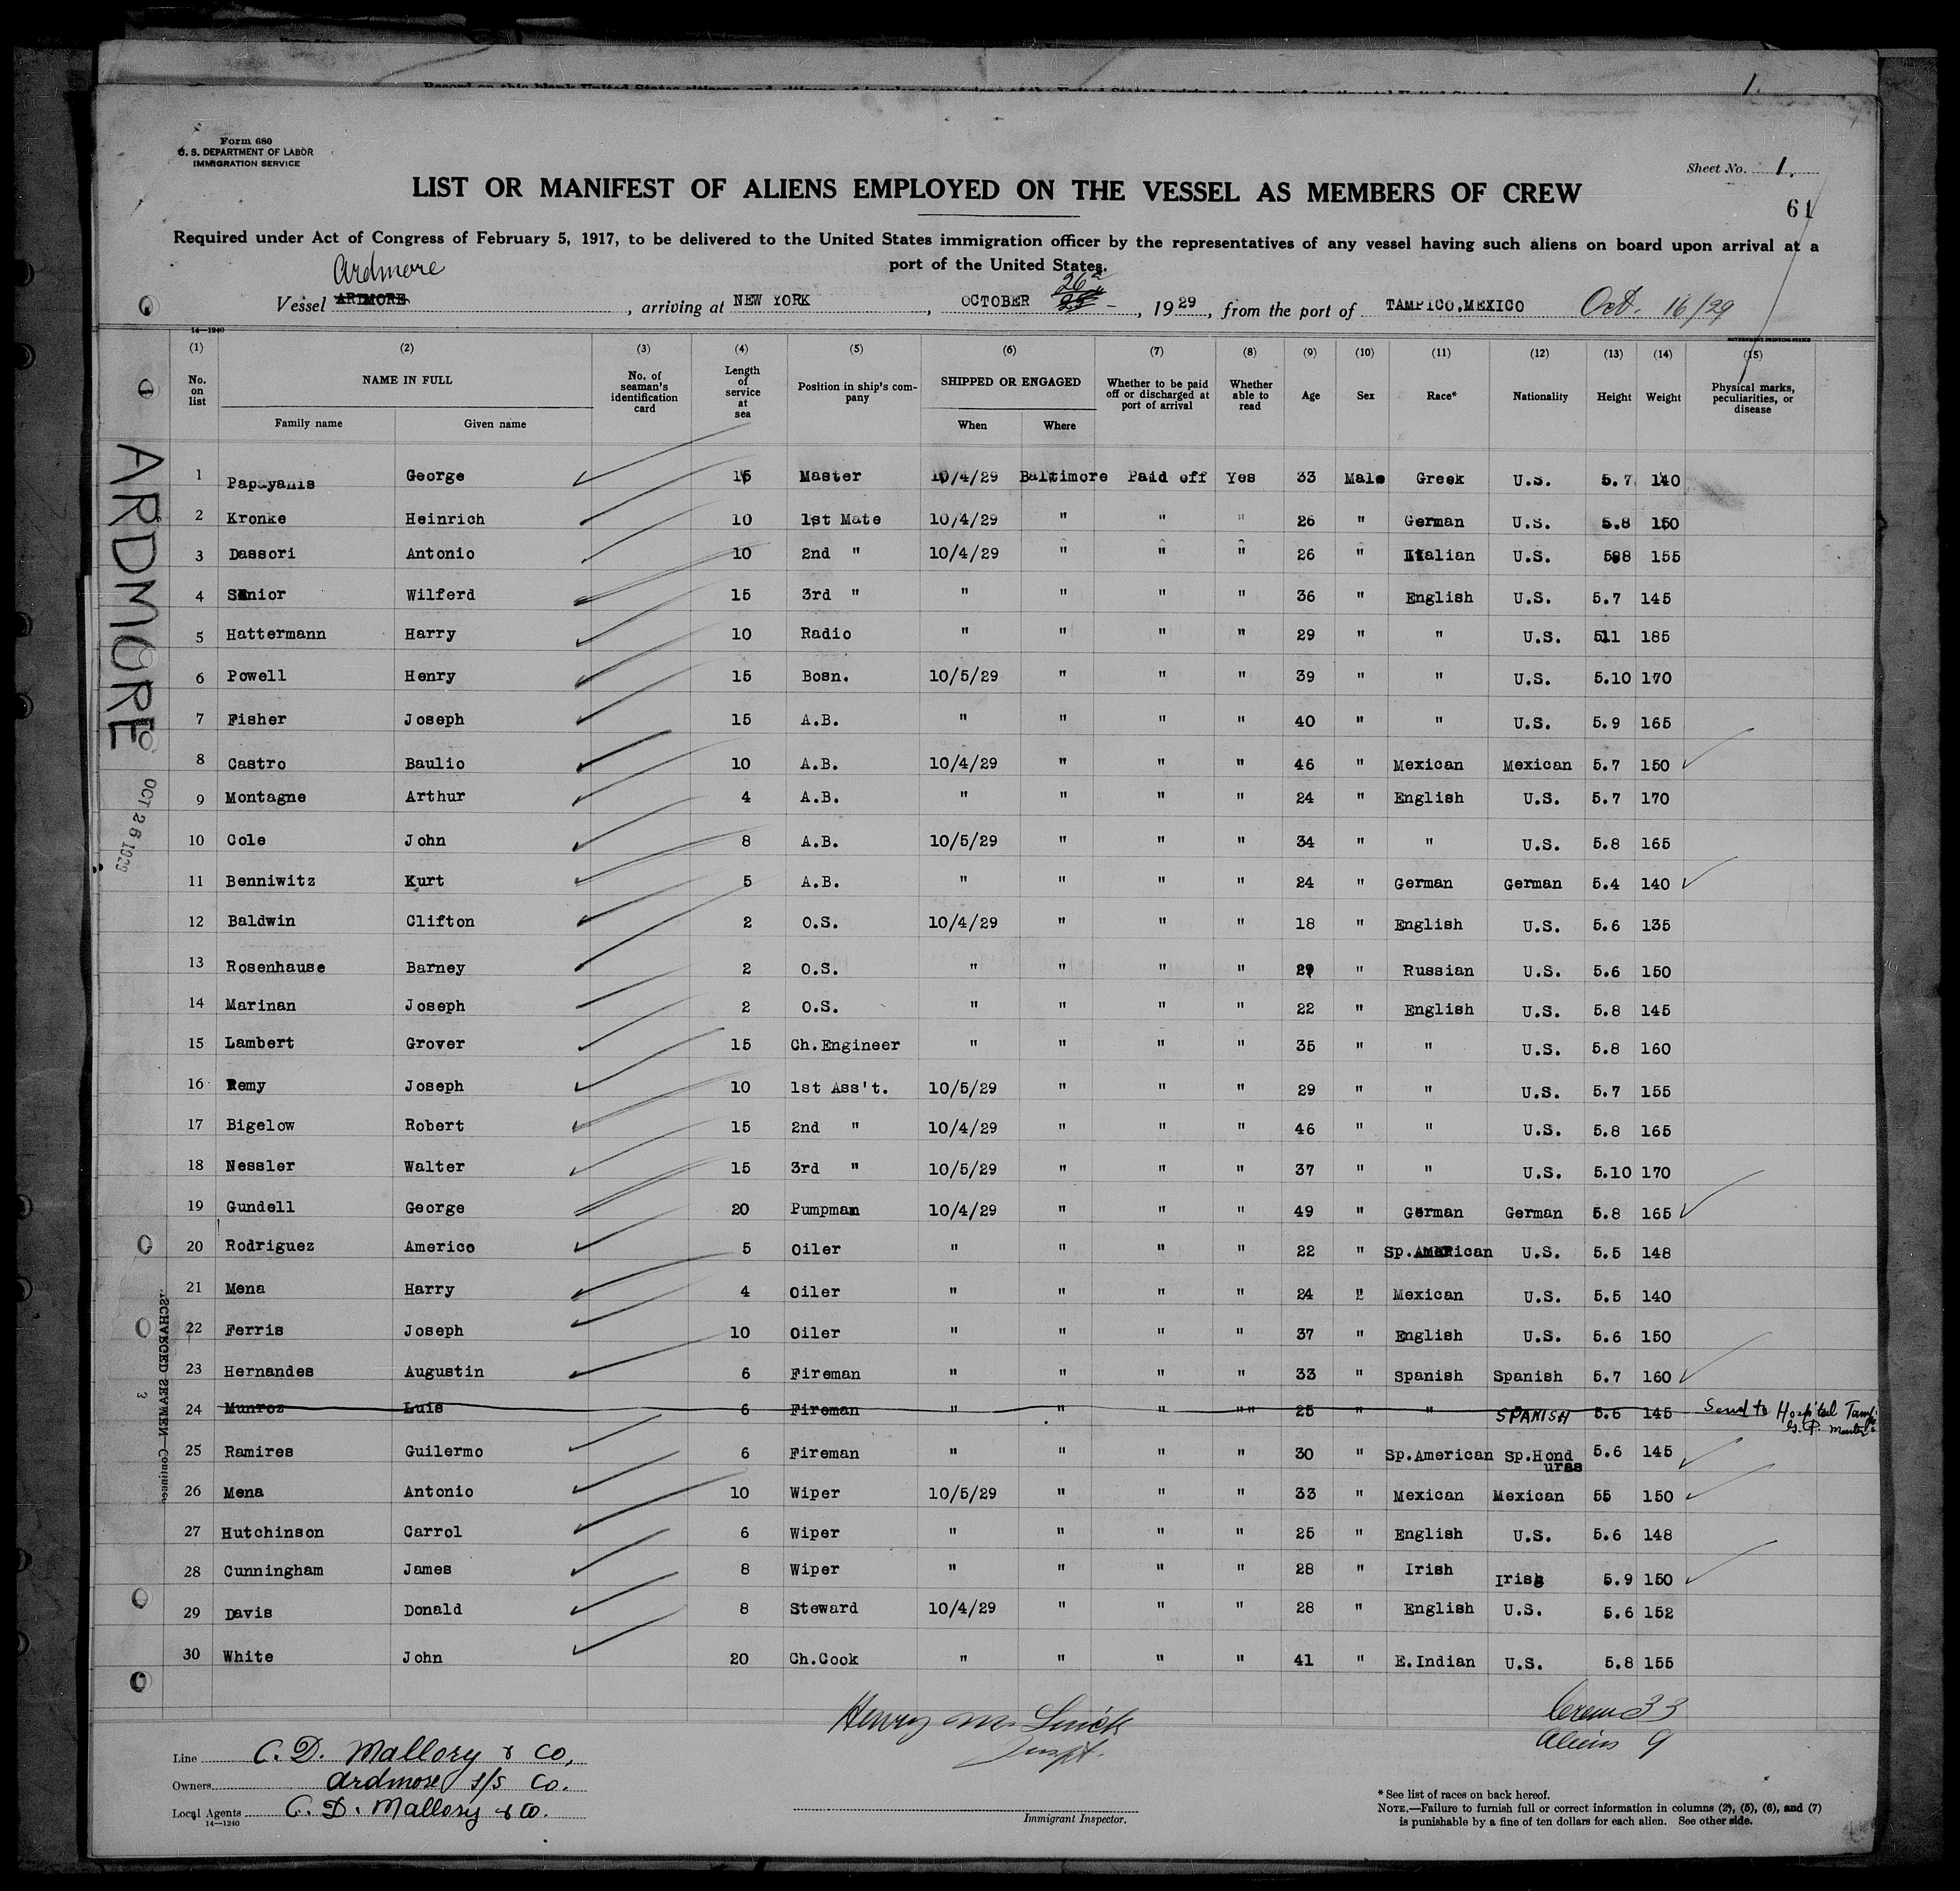 1.
Form 680
U. S. DEPARTMENT OF LABOR
IMMIGRATION SERVICE
Sheet No. 1.
LIST OR MANIFEST OF ALIENS EMPLOYED ON THE VESSEL AS MEMBERS OF CREW
61
Required under Act of Congress of February 5, 1917, to be delivered to the United States immigration officer by the representatives of any vessel having such aliens on board upon arrival at a
port of the United States.
Ardmore
Vessel ARDMORE, arriving at NEW YORK, OCTOBER 26, 1929, from the port of TAMPICO, MEXICO Oct. 16/29
14—1240
GOVERNMENT PRINTING OFFICE
(1) (2) (3) (4) (5) (6) (7) (8) (9) (10) (11) (12) (13) (14) (15)
No. on list NAME IN FULL No. of seaman's identification card Length of service at sea Position in ship's company SHIPPED OR ENGAGED Whether to be paid off or discharged at port of arrival Whether able to read Age Sex Race* Nationality Height Weight Physical marks, peculiarities, or disease
Family name Given name When Where
1 Papayanis George 15 Master 10/4/29 Baltimore Paid off Yes 33 Male Greek U.S. 5.7 140
2 Kronke Heinrich 10 1st Mate 10/4/29 " " " 26 " German U.S. 5.8 150
3 Dassori Antonio 10 2nd " 10/4/29 " " " 26 " Italian U.S. 5.8 155
4 Senior Wilferd 15 3rd " " " " " 36 " English U.S. 5.7 145
5 Hattermann Harry 10 Radio " " " " 29 " " U.S. 511 185
6 Powell Henry 15 Bosn. 10/5/29 " " " 39 " " U.S. 5.10 170
7 Fisher Joseph 15 A.B. " " " " 40 " " U.S. 5.9 165
8 Castro Baulio 10 A.B. 10/4/29 " " " 46 " Mexican Mexican 5.7 150
9 Montagne Arthur 4 A.B. " " " " 24 " English U.S. 5.7 170
10 Cole John 8 A.B. 10/5/29 " " " 34 " " U.S. 5.8 165
11 Benniwitz Kurt 5 A.B. " " " " 24 " German German 5.4 140
12 Baldwin Clifton 2 O.S. 10/4/29 " " " 18 " English U.S. 5.6 135
13 Rosenhause Barney 2 O.S. " " " " 29 " Russian U.S. 5.6 150
14 Marinan Joseph 2 O.S. " " " " 22 " English U.S. 5.8 145
15 Lambert Grover 15 Ch.Engineer " " " " 35 " " U.S. 5.8 160
16 Remy Joseph 10 1st Ass't. 10/5/29 " " " 29 " " U.S. 5.7 155
17 Bigelow Robert 15 2nd " 10/4/29 " " " 46 " " U.S. 5.8 165
18 Nessler Walter 15 3rd " 10/5/29 " " " 37 " " U.S. 5.10 170
19 Gundell George 20 Pumpman 10/4/29 " " " 49 " German German 5.8 165
20 Rodriguez Americo 5 Oiler " " " " 22 " Sp.American U.S. 5.5 148
21 Mena Harry 4 Oiler " " " " 24 " Mexican U.S. 5.5 140
22 Ferris Joseph 10 Oiler " " " " 37 " English U.S. 5.6 150
23 Hernandes Augustin 6 Fireman " " " " 33 " Spanish Spanish 5.7 160
24 Munroz Luis 6 Fireman " " " "" 25 " " SPANISH 5.6 145 Send to Hospital
25 Ramires Guilermo 6 Fireman " " " " 30 " Sp.American Sp.Honduras 5.6 145
26 Mena Antonio 10 Wiper 10/5/29 " " " 33 " Mexican Mexican 55 150
27 Hutchinson Carrol 6 Wiper " " " " 25 " English U.S. 5.6 148
28 Cunningham James 8 Wiper " " " " 28 " Irish Irish 5.9 150
29 Davis Donald 8 Steward 10/4/29 " " " 28 " English U.S. 5.6 152
30 White John 20 Ch.Cook " " " " 41 " E.Indian U.S. 5.8 155
ARDMORE
OCT 26 1929
Crew 33
Aliens 9
Line C. D. Mallory & Co.
Owners Ardmore S/S Co.
Local Agents C. D. Mallory & Co.
14—1240
Henry M.
Inspt.
Immigrant Inspector.
* See list of races on back hereof.
NOTE.—Failure to furnish full or correct information in columns (2), (5), (6), and (7)
is punishable by a fine of ten dollars for each alien. See other side.